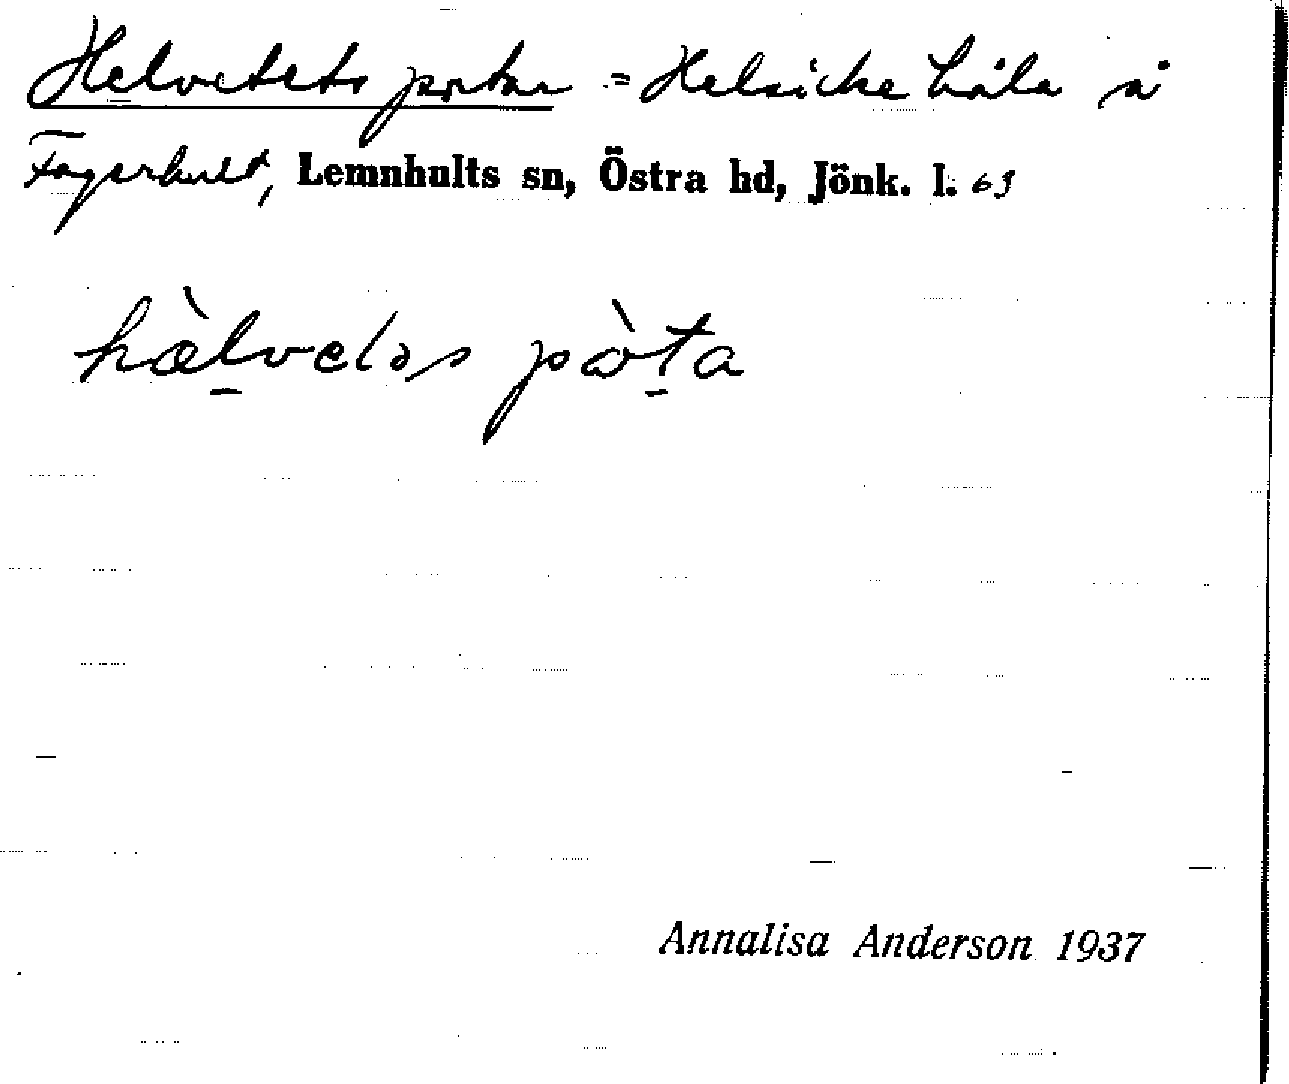 Helvetets portar = Helsicke håla å
Fagerhult, Lemnhults sn, Östra hd, Jönk. l. 63
hæ̀lvetəs pòta
Annalisa Anderson 1937